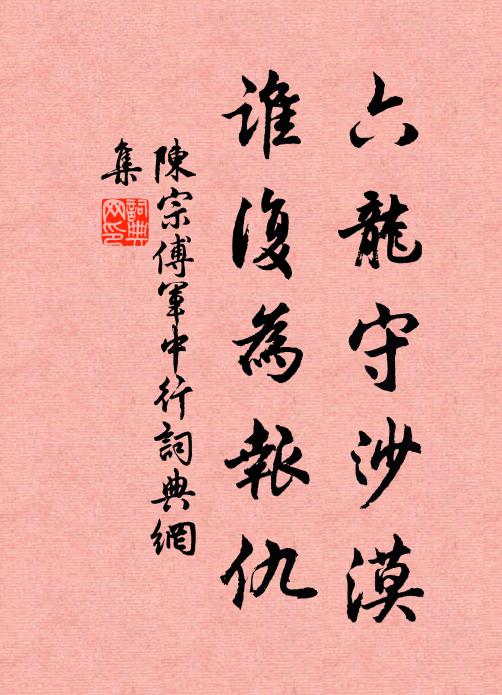 六龍守沙漠
誰復為報仇
陳宗傅軍中行詞典網
集
詞典
网印